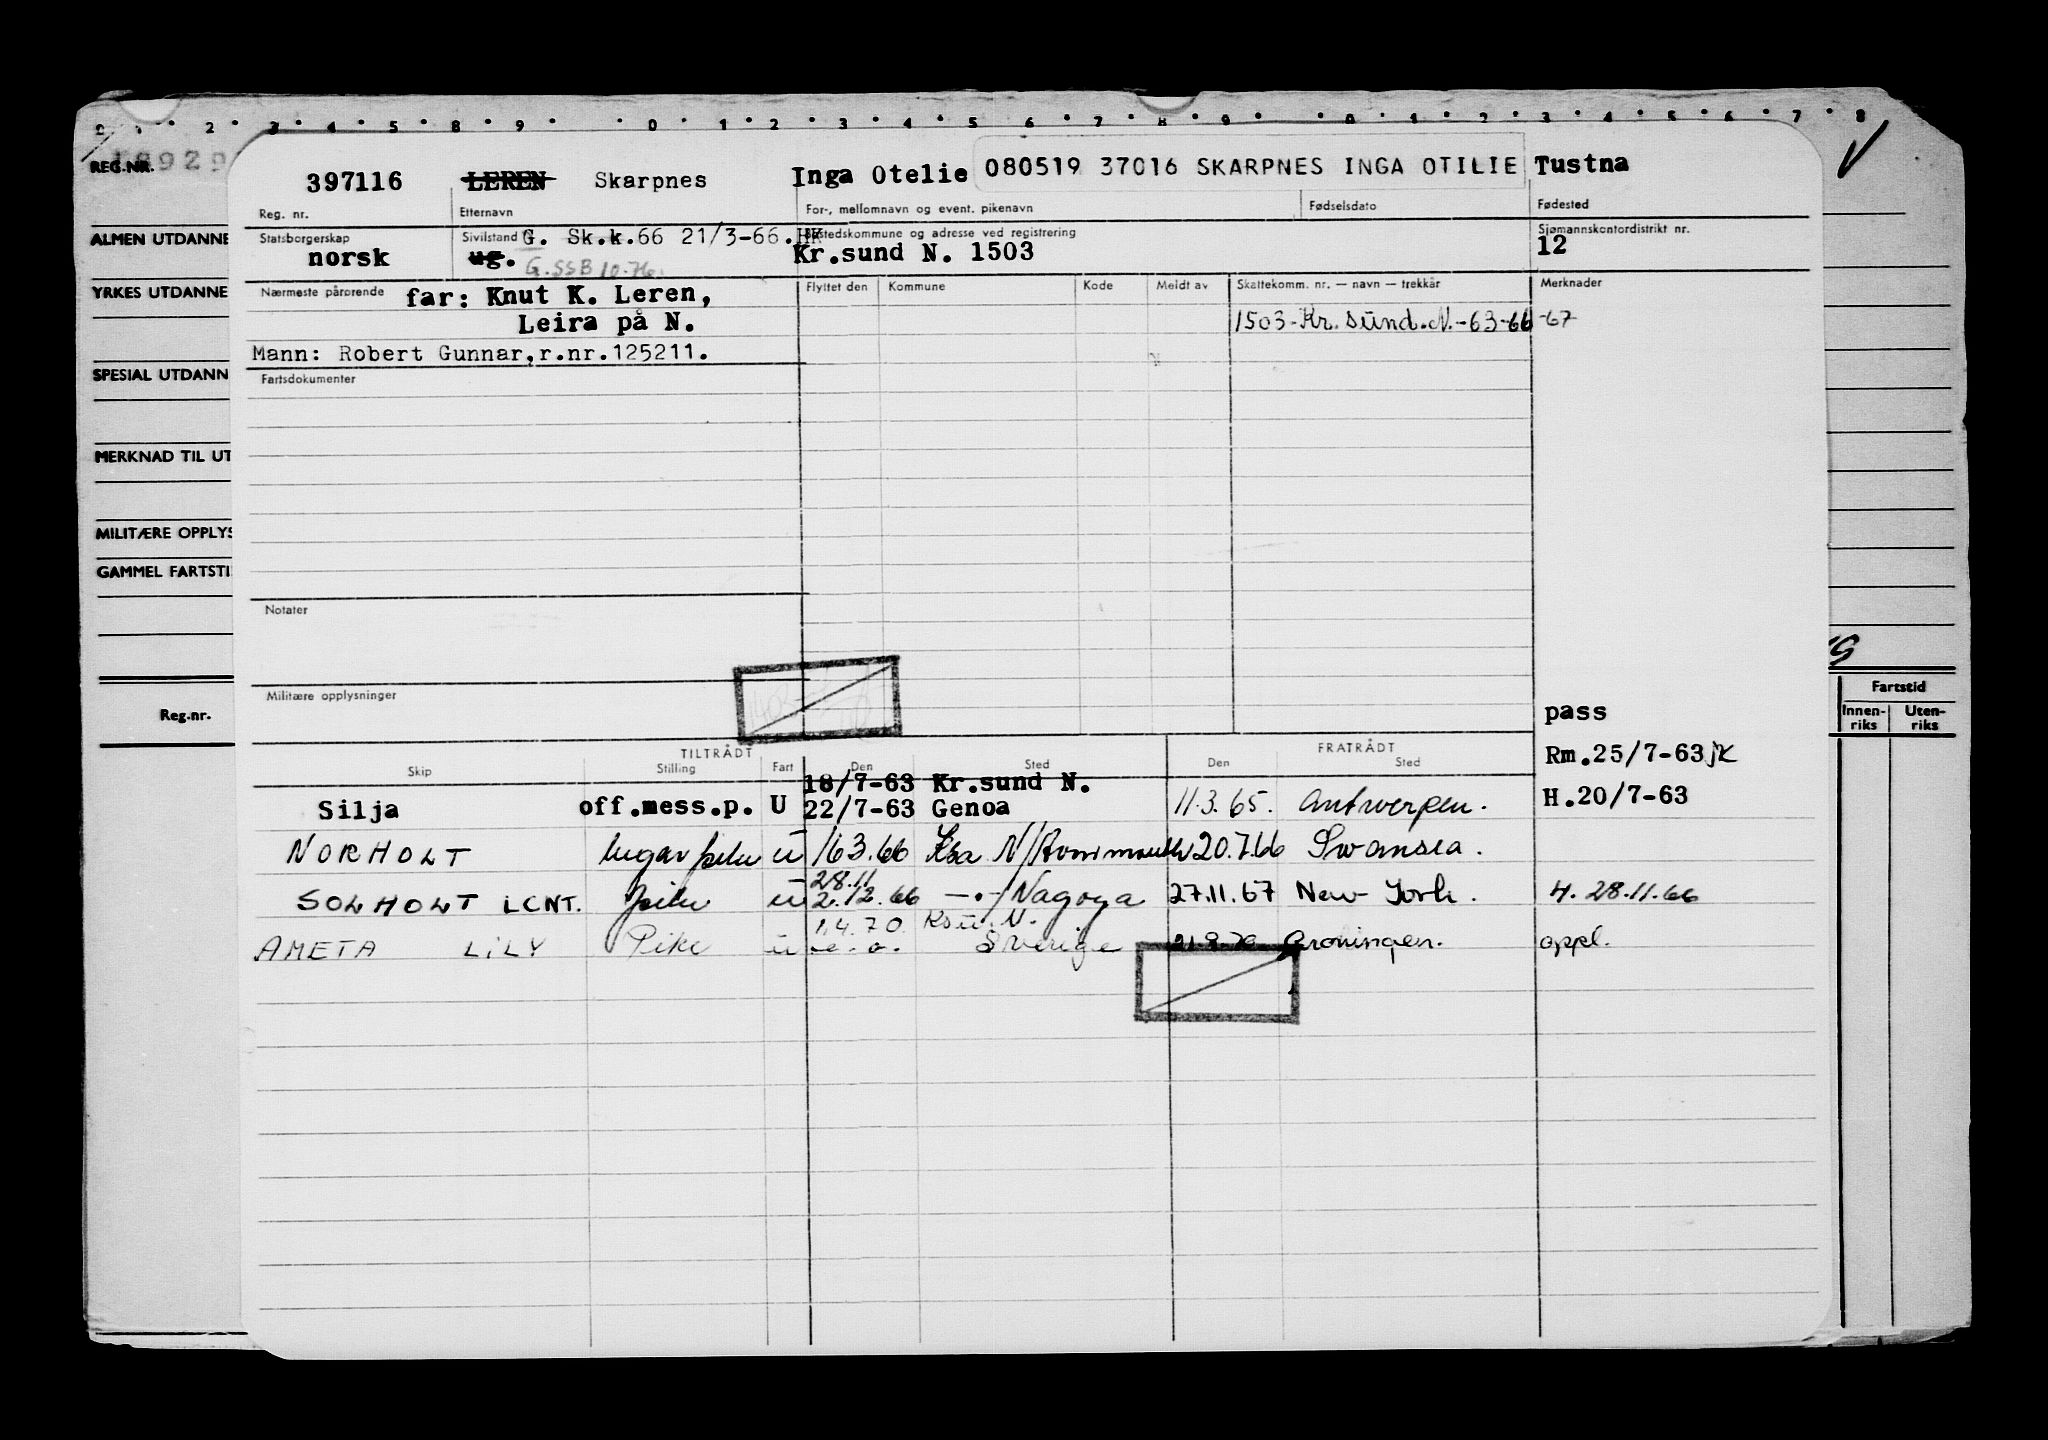 REG.NR.
397116 LEREN Skarpnes Inga Otelie 080519 37016 SKARPNES INGA OTILIE Tustna
Reg. nr. Etternavn For-, mellomnavn og event. pikenavn Fødselsdato Fødested
ALMEN UTDANNE
Statsborgerskap Sivilstand G. Sk.k.66 21/3-66.HK Bostedskommune og adresse ved registrering Sjømannskontordistrikt nr.
norsk ug. G.SSB 10.76. Kr.sund N. 1503 12
YRKES UTDANNE
Nærmeste pårørende far: Knut K. Leren, Flyttet den Kommune Kode Meldt av Skattekomm. nr. — navn — trekkår Merknader
Leira på N. 1503-Kr.sund.N.-63-66-67
Mann: Robert Gunnar,r.nr.125211.
SPESIAL UTDANN
Fartsdokumenter
MERKNAD TIL UT
MILITÆRE OPPLYS
GAMMEL FARTSTI
Notater
Militære opplysninger
Reg.nr.
Fartstid
Innen-riks Uten-riks
pass
TILTRÅDT FRATRÅDT
Rm.25/7-63
Skip Stilling Fart Den Sted Den Sted
18/7-63 Kr.sund N.
Silja off.mess.p. U 22/7-63 Genoa 11.3.65. Antwerpen. H.20/7-63
NORHOLT lugarpike u 163.66 Ksa N/Avonmouth 20.7.66 Swansea.
28.11
SOLHOLT LCNT. pike u 2.12.66 —•—/Nagoya 27.11.67 New York. H. 28.11.66
1.4.70. Ksu. N.
AMETA LILY Pike u Sverige 21.8.70 Groningen. oppl.